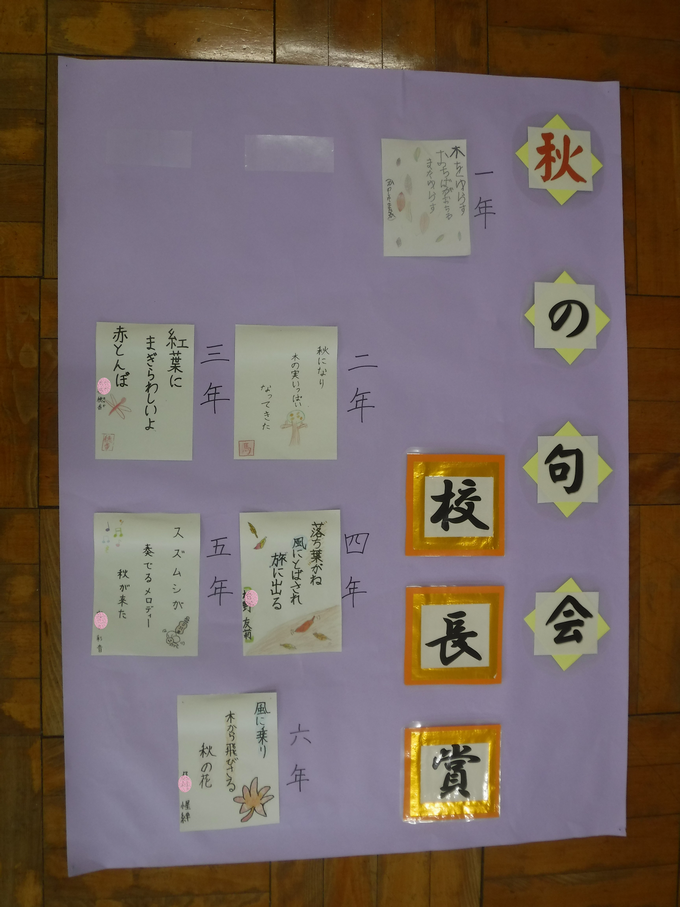 秋の句会
校長賞
一年
木をゆらす
おちばがおちる
まだゆらす
二年
秋になり
木の実いっぱい
なってきた
三年
紅葉に
まぎらわしいよ
赤とんぼ
四年
落ち葉がね
風にとばされ
旅に出る
五年
スズムシが
奏でるメロディー
秋が来た
六年
風に乗り
木から飛びさる
秋の花